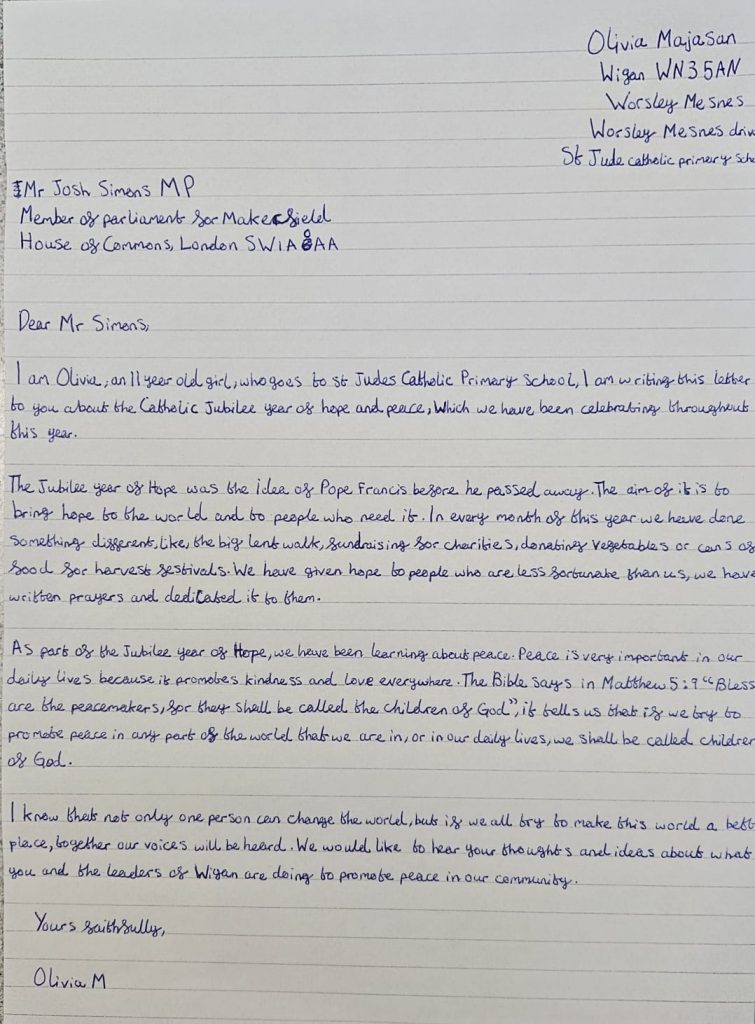 Olivia Majasan
Wigan WN35AN
Worsley Mesnes
Worsley Mesnes driv
St Jude catholic primary scho
Mr Josh Simons MP
Member of parliament for Makerfield
House of Commons, London SW1A 0AA
Dear Mr Simons,
I am Olivia, an 11 year old girl, who goes to st Judes Catholic Primary School, I am writing this letter
to you about the Catholic Jubilee year of hope and peace, which we have been celebrating throughout
this year.
The Jubilee year of Hope was the idea of Pope Francis before he passed away. The aim of it is to
bring hope to the world and to people who need it. In every month of this year we have done
something different, like, the big lent walk, fundraising for charities, donating vegetables or cans of
food for harvest festivals. We have given hope to people who are less fortunate than us, we have
written prayers and dedicated it to them.
As part of the Jubilee year of Hope, we have been learning about peace. Peace is very important in our
daily lives because it promotes kindness and love everywhere. The Bible says in Matthew 5:9 "Bless
are the peacemakers, for they shall be called the children of God", it tells us that if we try to
promote peace in any part of the world that we are in, or in our daily lives, we shall be called children
of God.
I know that not only one person can change the world, but if we all try to make this world a bett
place, together our voices will be heard. We would like to hear your thoughts and ideas about what
you and the leaders of Wigan are doing to promote peace in our community.
Yours faithfully,
Olivia M